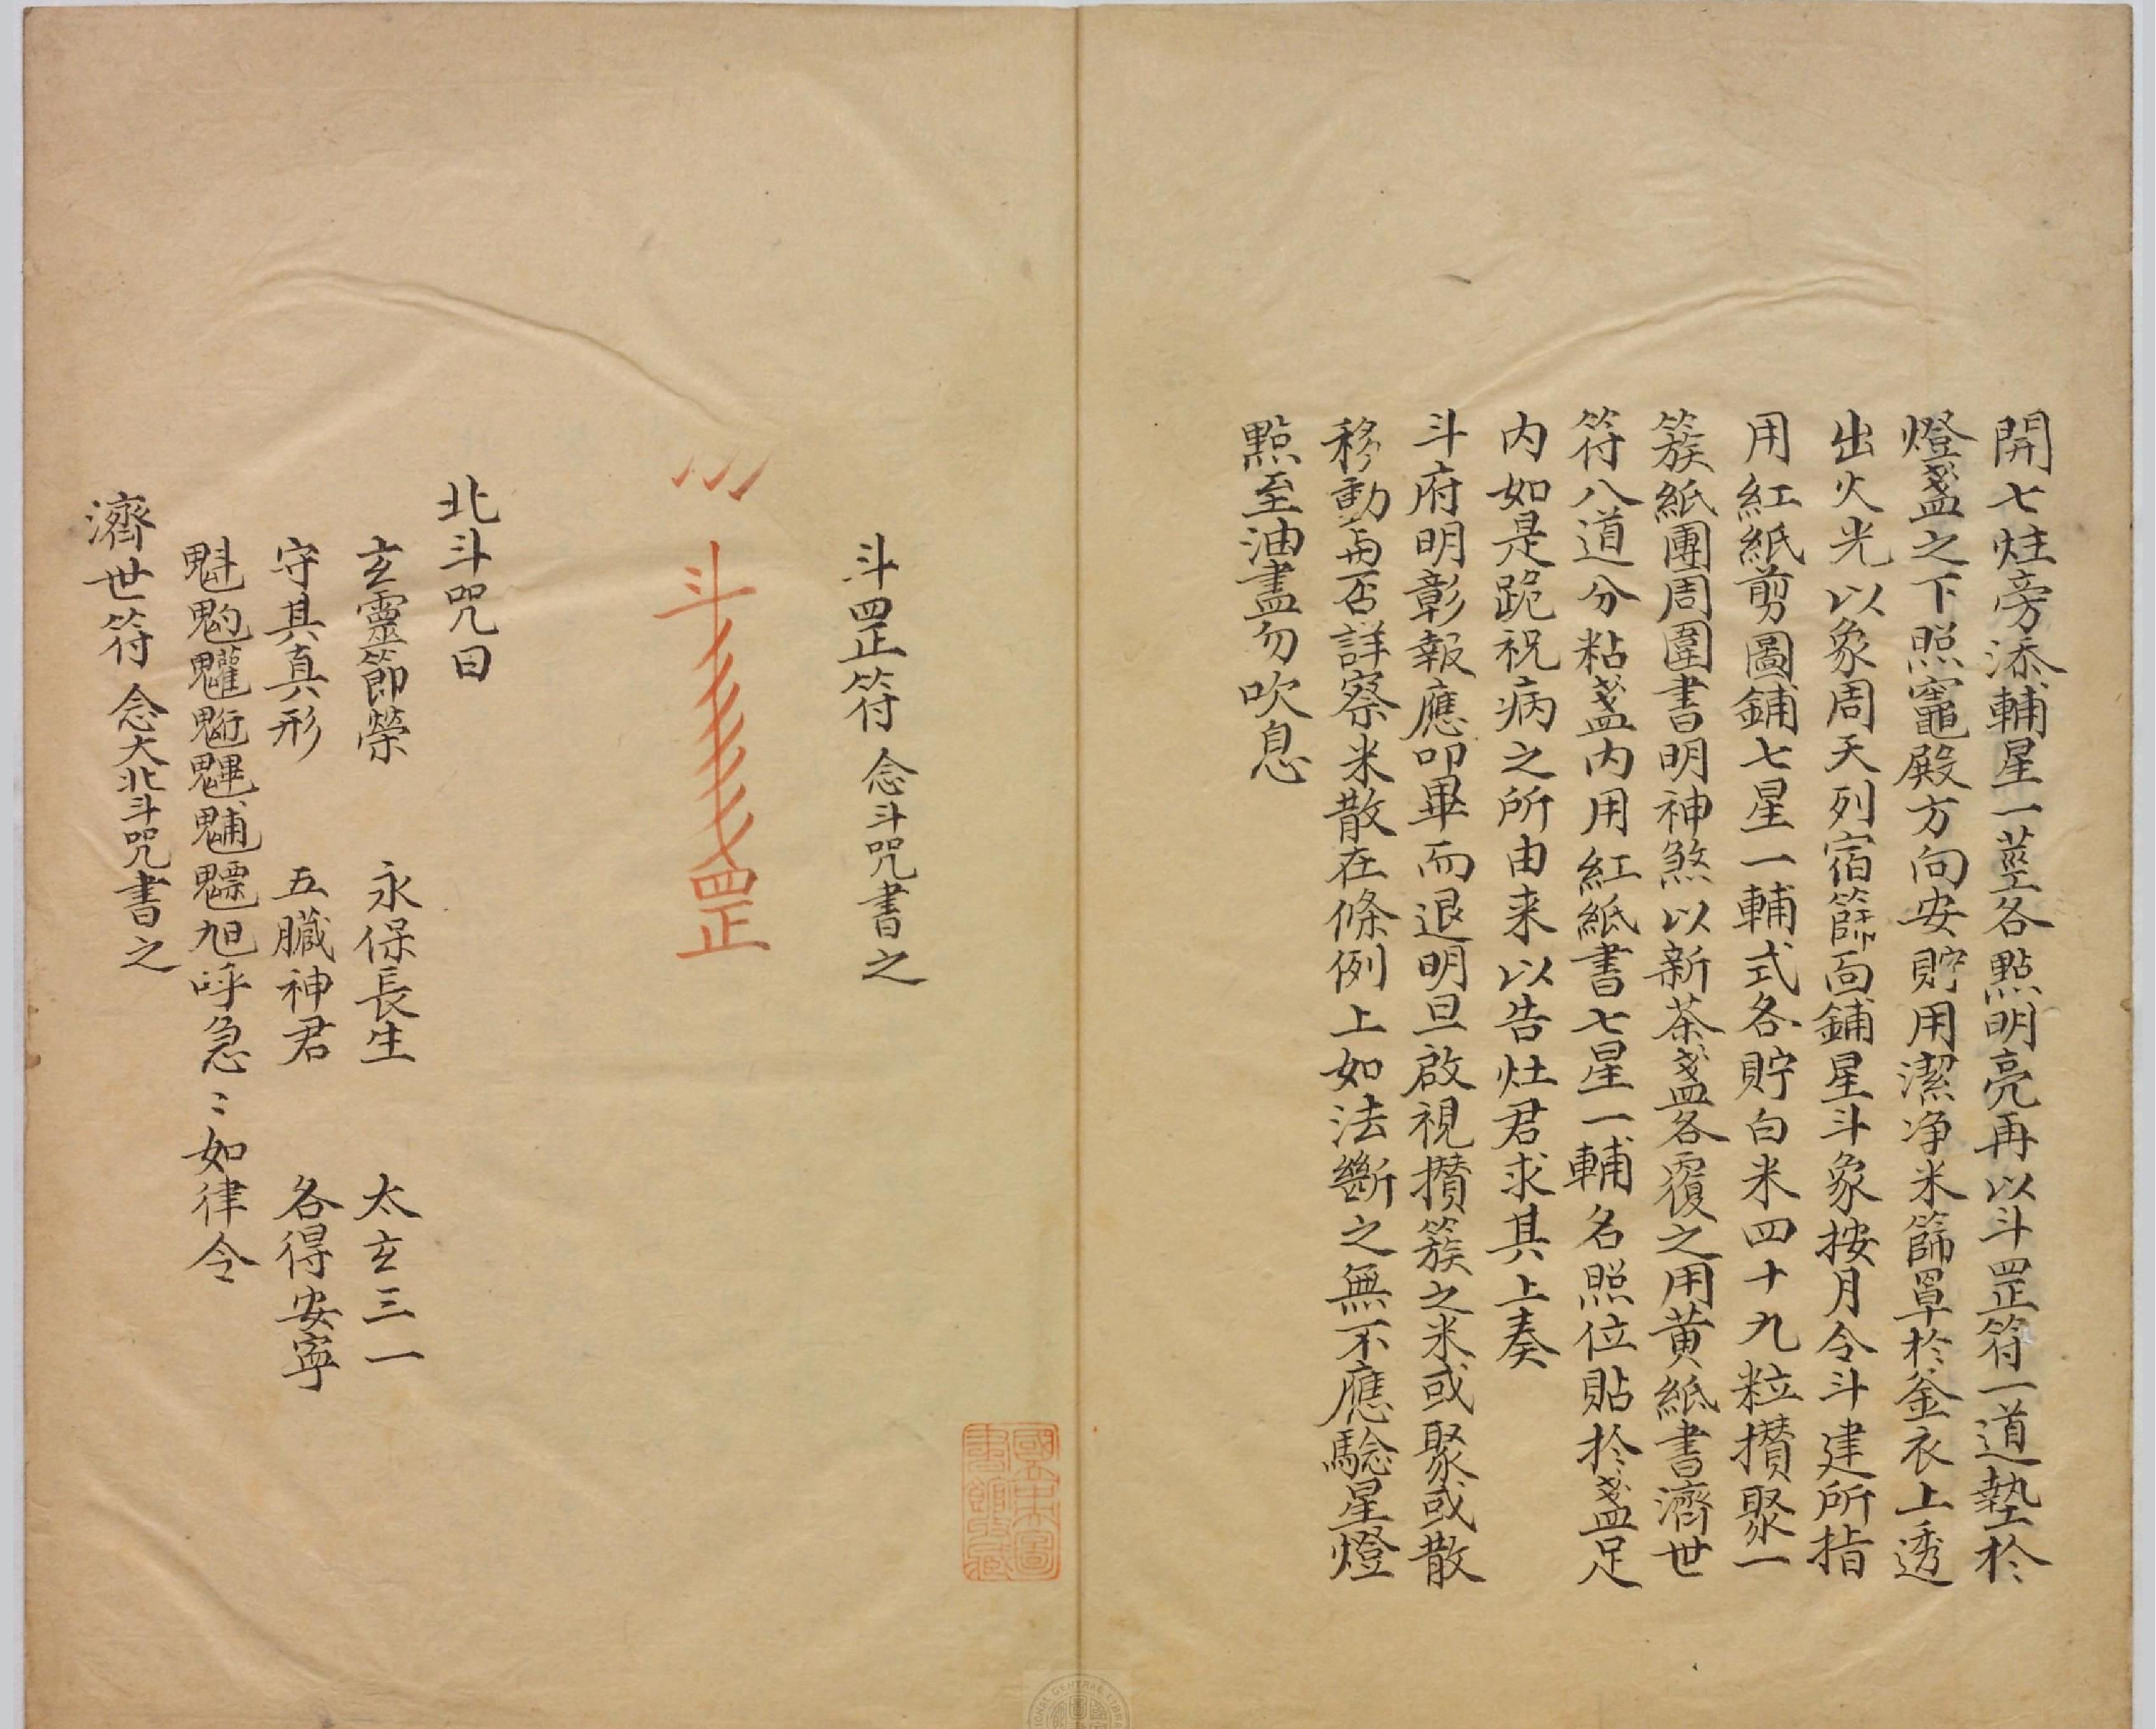 開七炷旁添輔星一莖各點明亮再以斗罡符一道墊於
燈盞之下照竃殿方向安貯用潔净米篩罩於釜衣上透
出火光以象周天列宿篩面鋪星斗象按月令斗建所指
用紅紙剪圖鋪七星一輔式各貯白米四十九粒攢聚一
簇紙團周圍書明神煞以新茶盞各覆之用黄紙書濟世
符八道分粘盞内用紅紙書七星一輔名照位貼於盞足
内如是跪祝病之所由来以告灶君求其上奏
斗府明彰報應叩畢而退明旦啟視攢簇之米或聚或散
移動與否詳察米散在條例上如法斷之無不應驗星燈
點至油盡勿吹息
斗罡符 念斗咒書之
斗 罡
北斗咒曰
玄靈節榮 永保長生 太玄三一
守其真形 五臟神君 各得安寧
魁䰢䰫魓䰲䰶魒旭呼急〻如律令
濟世符 念大北斗咒書之
國立中央圖書館收藏